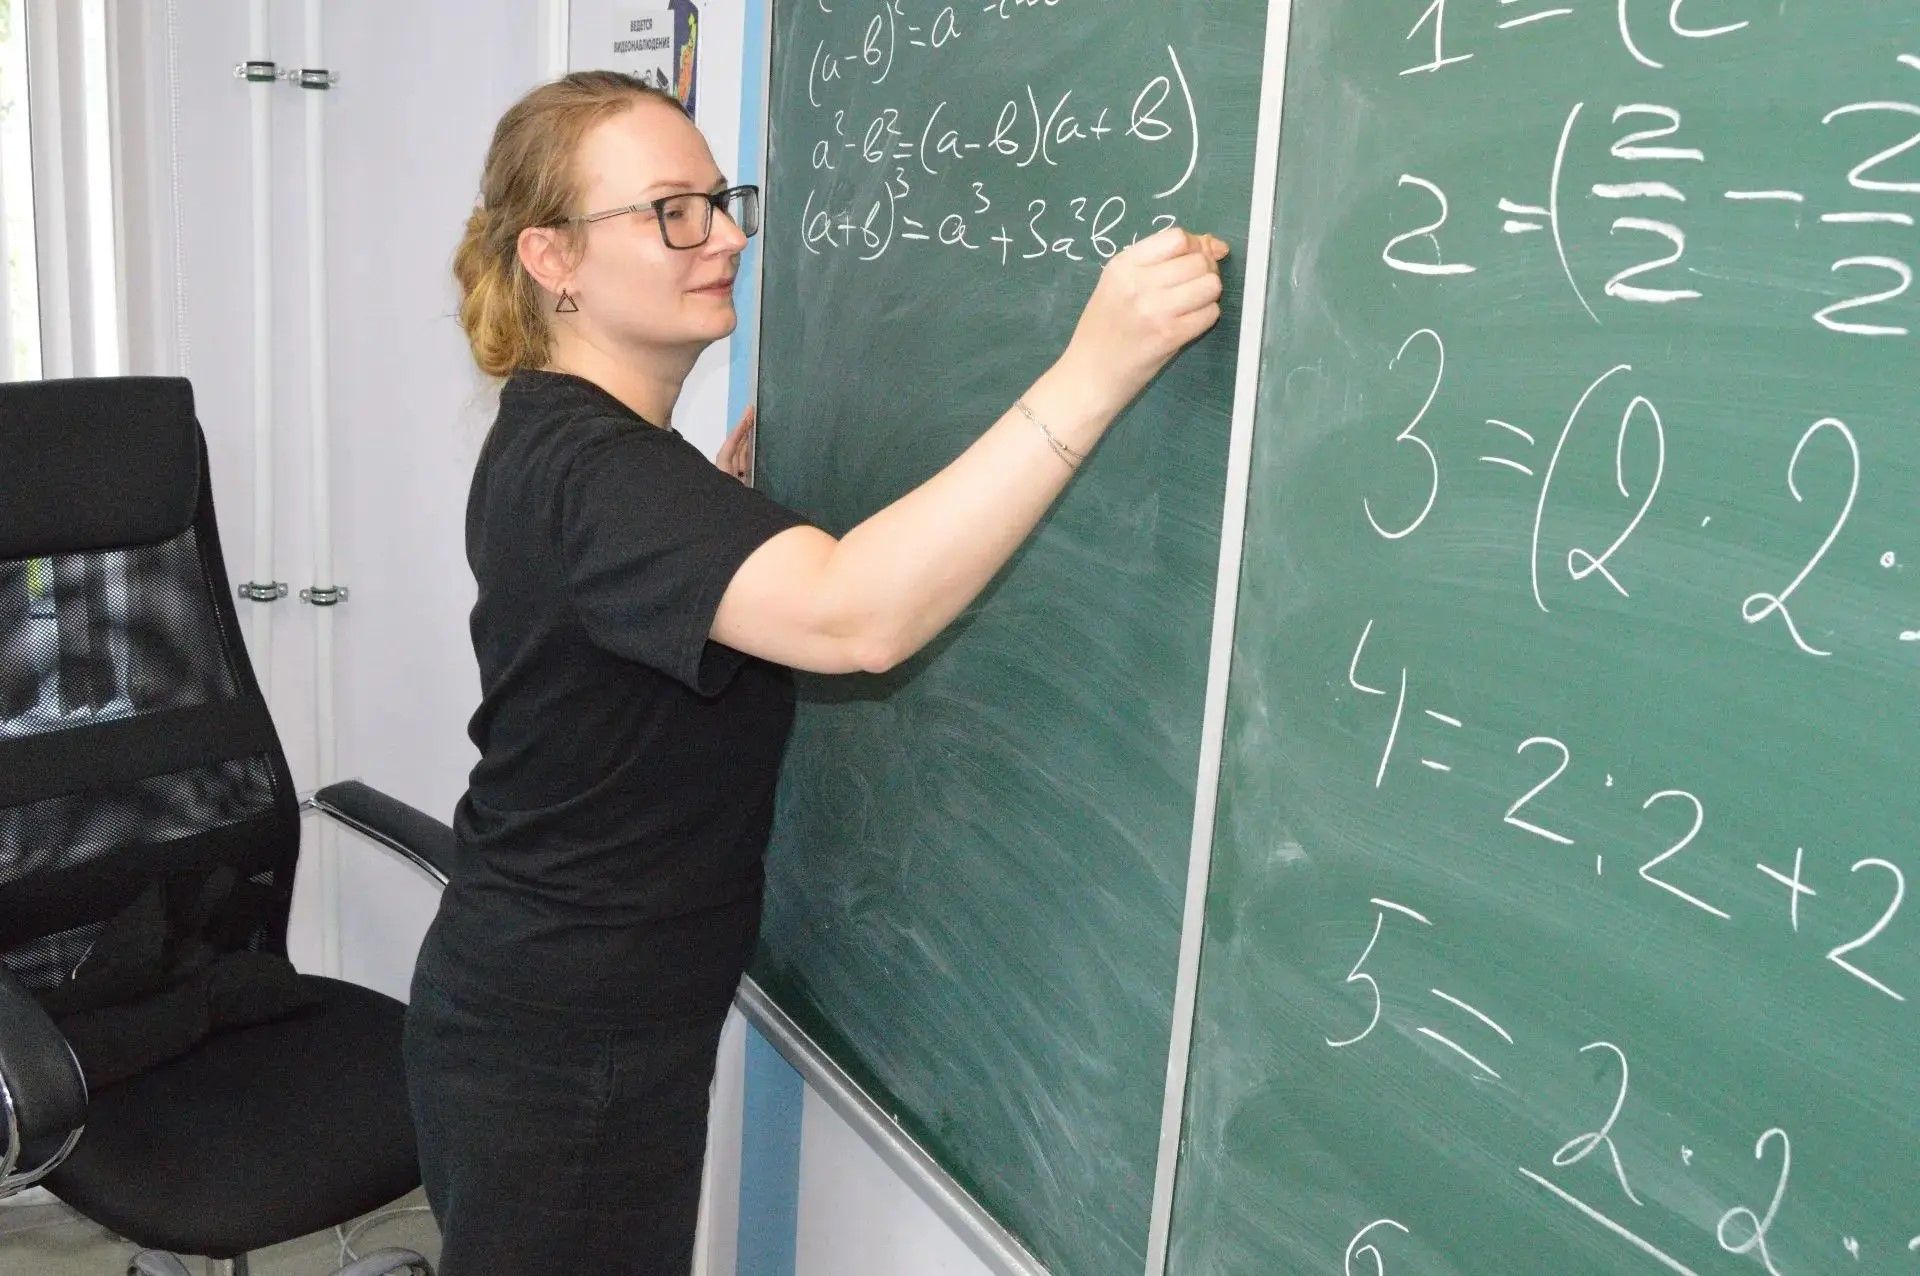 ВЕДЕТСЯ
ВИДЕОНАБЛЮДЕНИЕ
(a-b)²=a²
a²-b²=(a-b)(a+b)
(a+b)³=a³+3a²b+3
1=(2
2=(2/2-2/2
3=(2·2·
4=2:2+2
5=2·2·
6